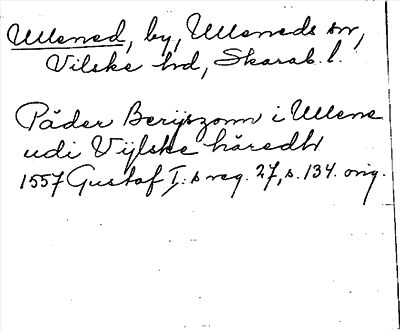 Ullened, by, Ulleneds sn,
Vilske hd, Skarab. l.
Päder Berijszonn i Ullene
udi Vijlske häredh
1557 Gustaf I:s reg. 27, s. 134. orig.